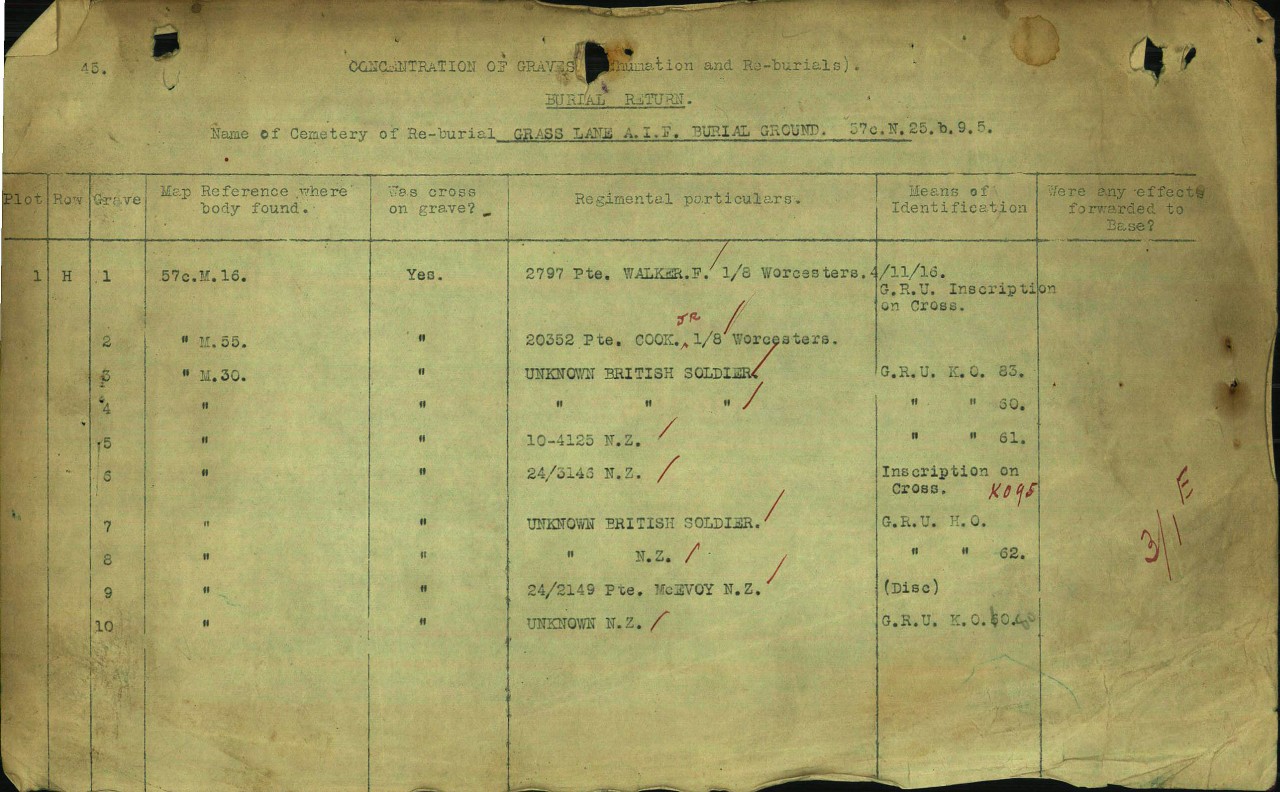 45.
CONCENTRATION OF GRAVES humation and Re-burials).
BURIAL RETURN.
Name of Cemetery of Re-burial GRASS LANE A.I.F. BURIAL GROUND. 57c.N.25.b.9.5.
Plot Row Grave Map Reference where body found. Was cross on grave? Regimental particulars. Means of Identification Were any effects forwarded to Base?
1 H 1 57c.M.16. Yes. 2797 Pte. WALKER.F. 1/8 Worcesters. 4/11/16.
G.R.U. Inscription
on Cross.
JR
2 " M.55. " 20352 Pte. COOK. 1/8 Worcesters.
3 " M.30. " UNKNOWN BRITISH SOLDIER. G.R.U. K.O. 83.
4 " " " " " " " 60.
5 " " 10-4125 N.Z. " " 61.
6 " " 24/3146 N.Z. Inscription on
Cross. KO95
7 " " UNKNOWN BRITISH SOLDIER. G.R.U. H.O.
8 " " " N.Z. " " 62.
9 " " 24/2149 Pte. McEVOY N.Z. (Disc)
10 " " UNKNOWN N.Z. G.R.U. K.O.
3/1 E